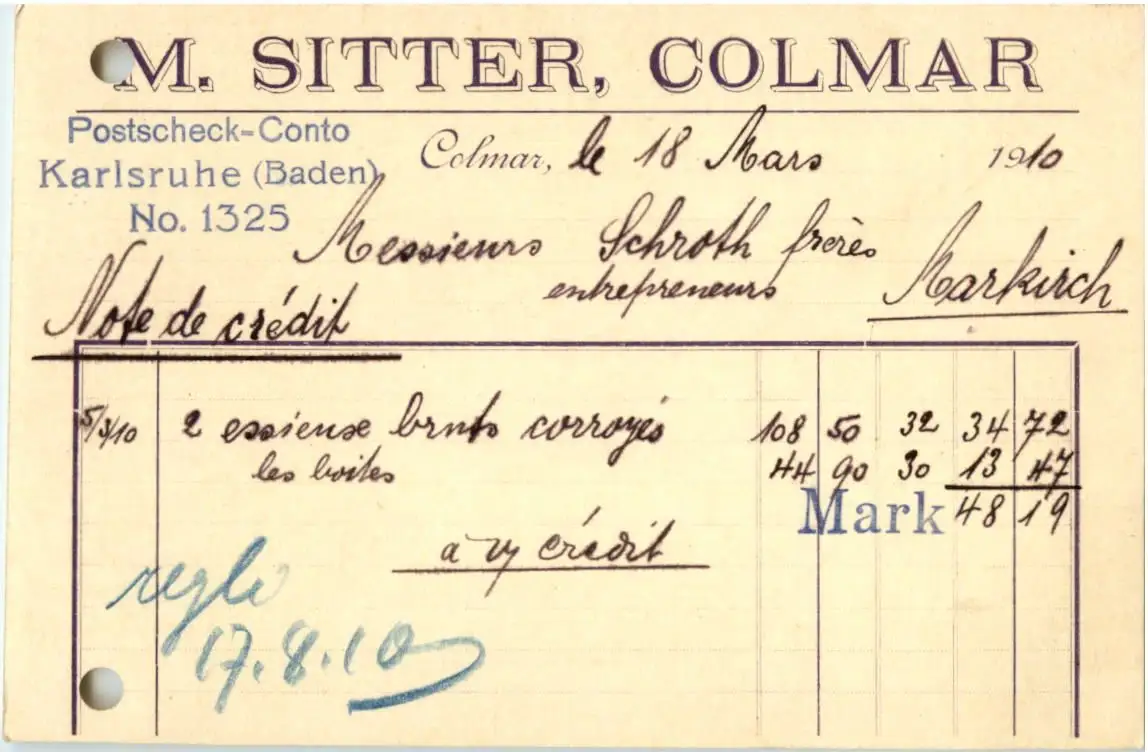 M. SITTER, COLMAR
Postscheck-Conto
Karlsruhe (Baden)
No. 1325
Colmar, le 18 Mars 1910
Messieurs Schroth frères
entrepreneurs Markirch
Note de crédit
5/3/10 2 essieux bruts corroyés 108 50 32 34 72
les boites 44 90 30 13 47
Mark 48 19
à v/ crédit
reglé
17.8.10